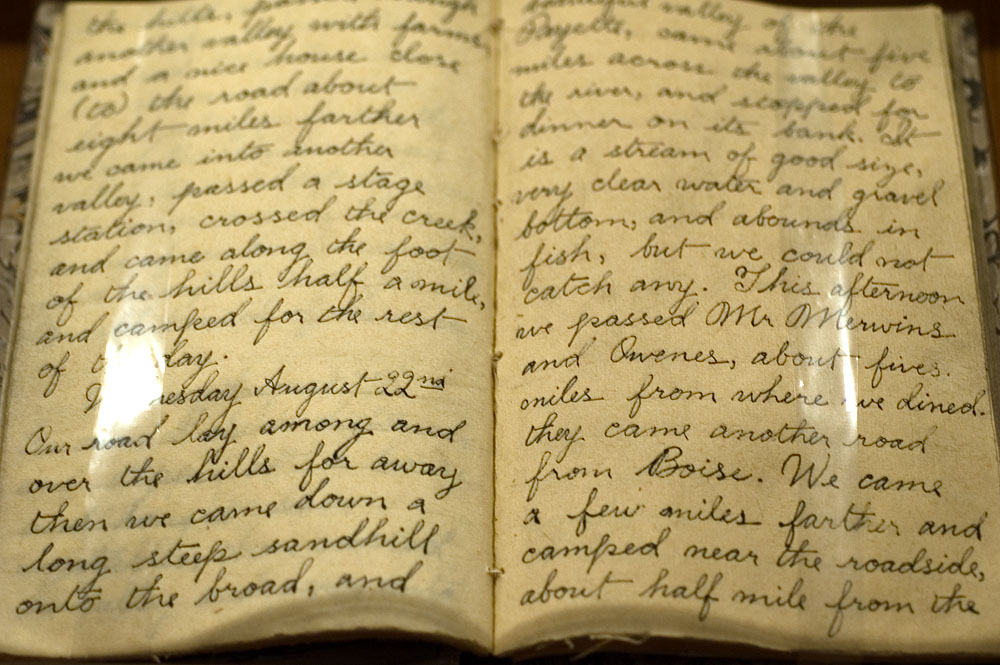 the hills, passed through
another valley with farms,
and a nice house close
(to) the road about
eight miles farther
we came into another
valley, passed a stage
station, crossed the creek,
and came along the foot
of the hills half a mile,
and camped for the rest
of day.
August 22nd
Our road lay among and
over the hills for away
then we came down a
long steep sandhill
onto the broad, and
beautiful valley of the
Payette, came about five
miles across the valley to
the river, and stopped for
dinner on its bank. It
is a stream of good size,
very clear water and gravel
bottom, and abounds in
fish, but we could not
catch any. This afternoon
we passed Mr Merwins
and Owenes, about fives.
miles from where we dined.
they came another road
from Boise. We came
a few miles farther and
camped near the roadside,
about half mile from the